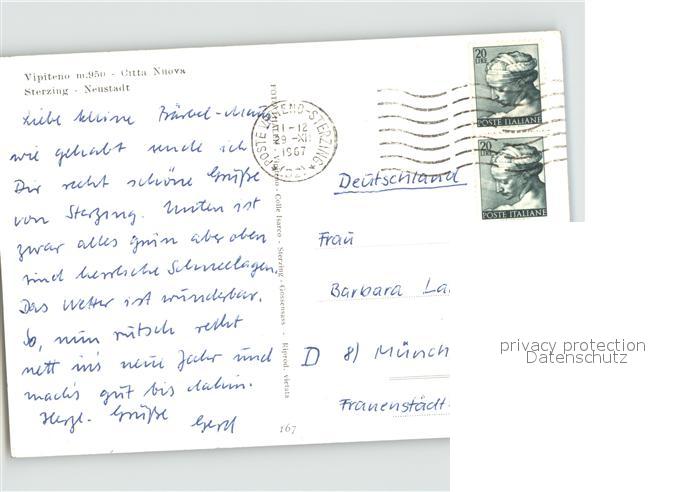 Vipiteno m.950 - Citta Nuova
Sterzing - Neustadt
Liebe kleine Bärbel-Maus
wie gehabt sende ich
Dir recht schöne Grüße
von Sterzing. Unten ist
zwar alles grün aber oben
sind herrliche Schneelagen.
Das Wetter ist wunderbar.
So, nun rutsch recht
nett ins neue Jahr und
mach's gut bis dahin.
Herzl. Grüße
Gerd
Colle Isarco - Sterzing - Gossensass - Riprod. vietata
167
STERZING
1967
20 LIRE
POSTE ITALIANE
20 LIRE
POSTE ITALIANE
Deutschland
Frau
Barbara La
D 8) Münch
Frauenstädt
privacy protection
Datenschutz